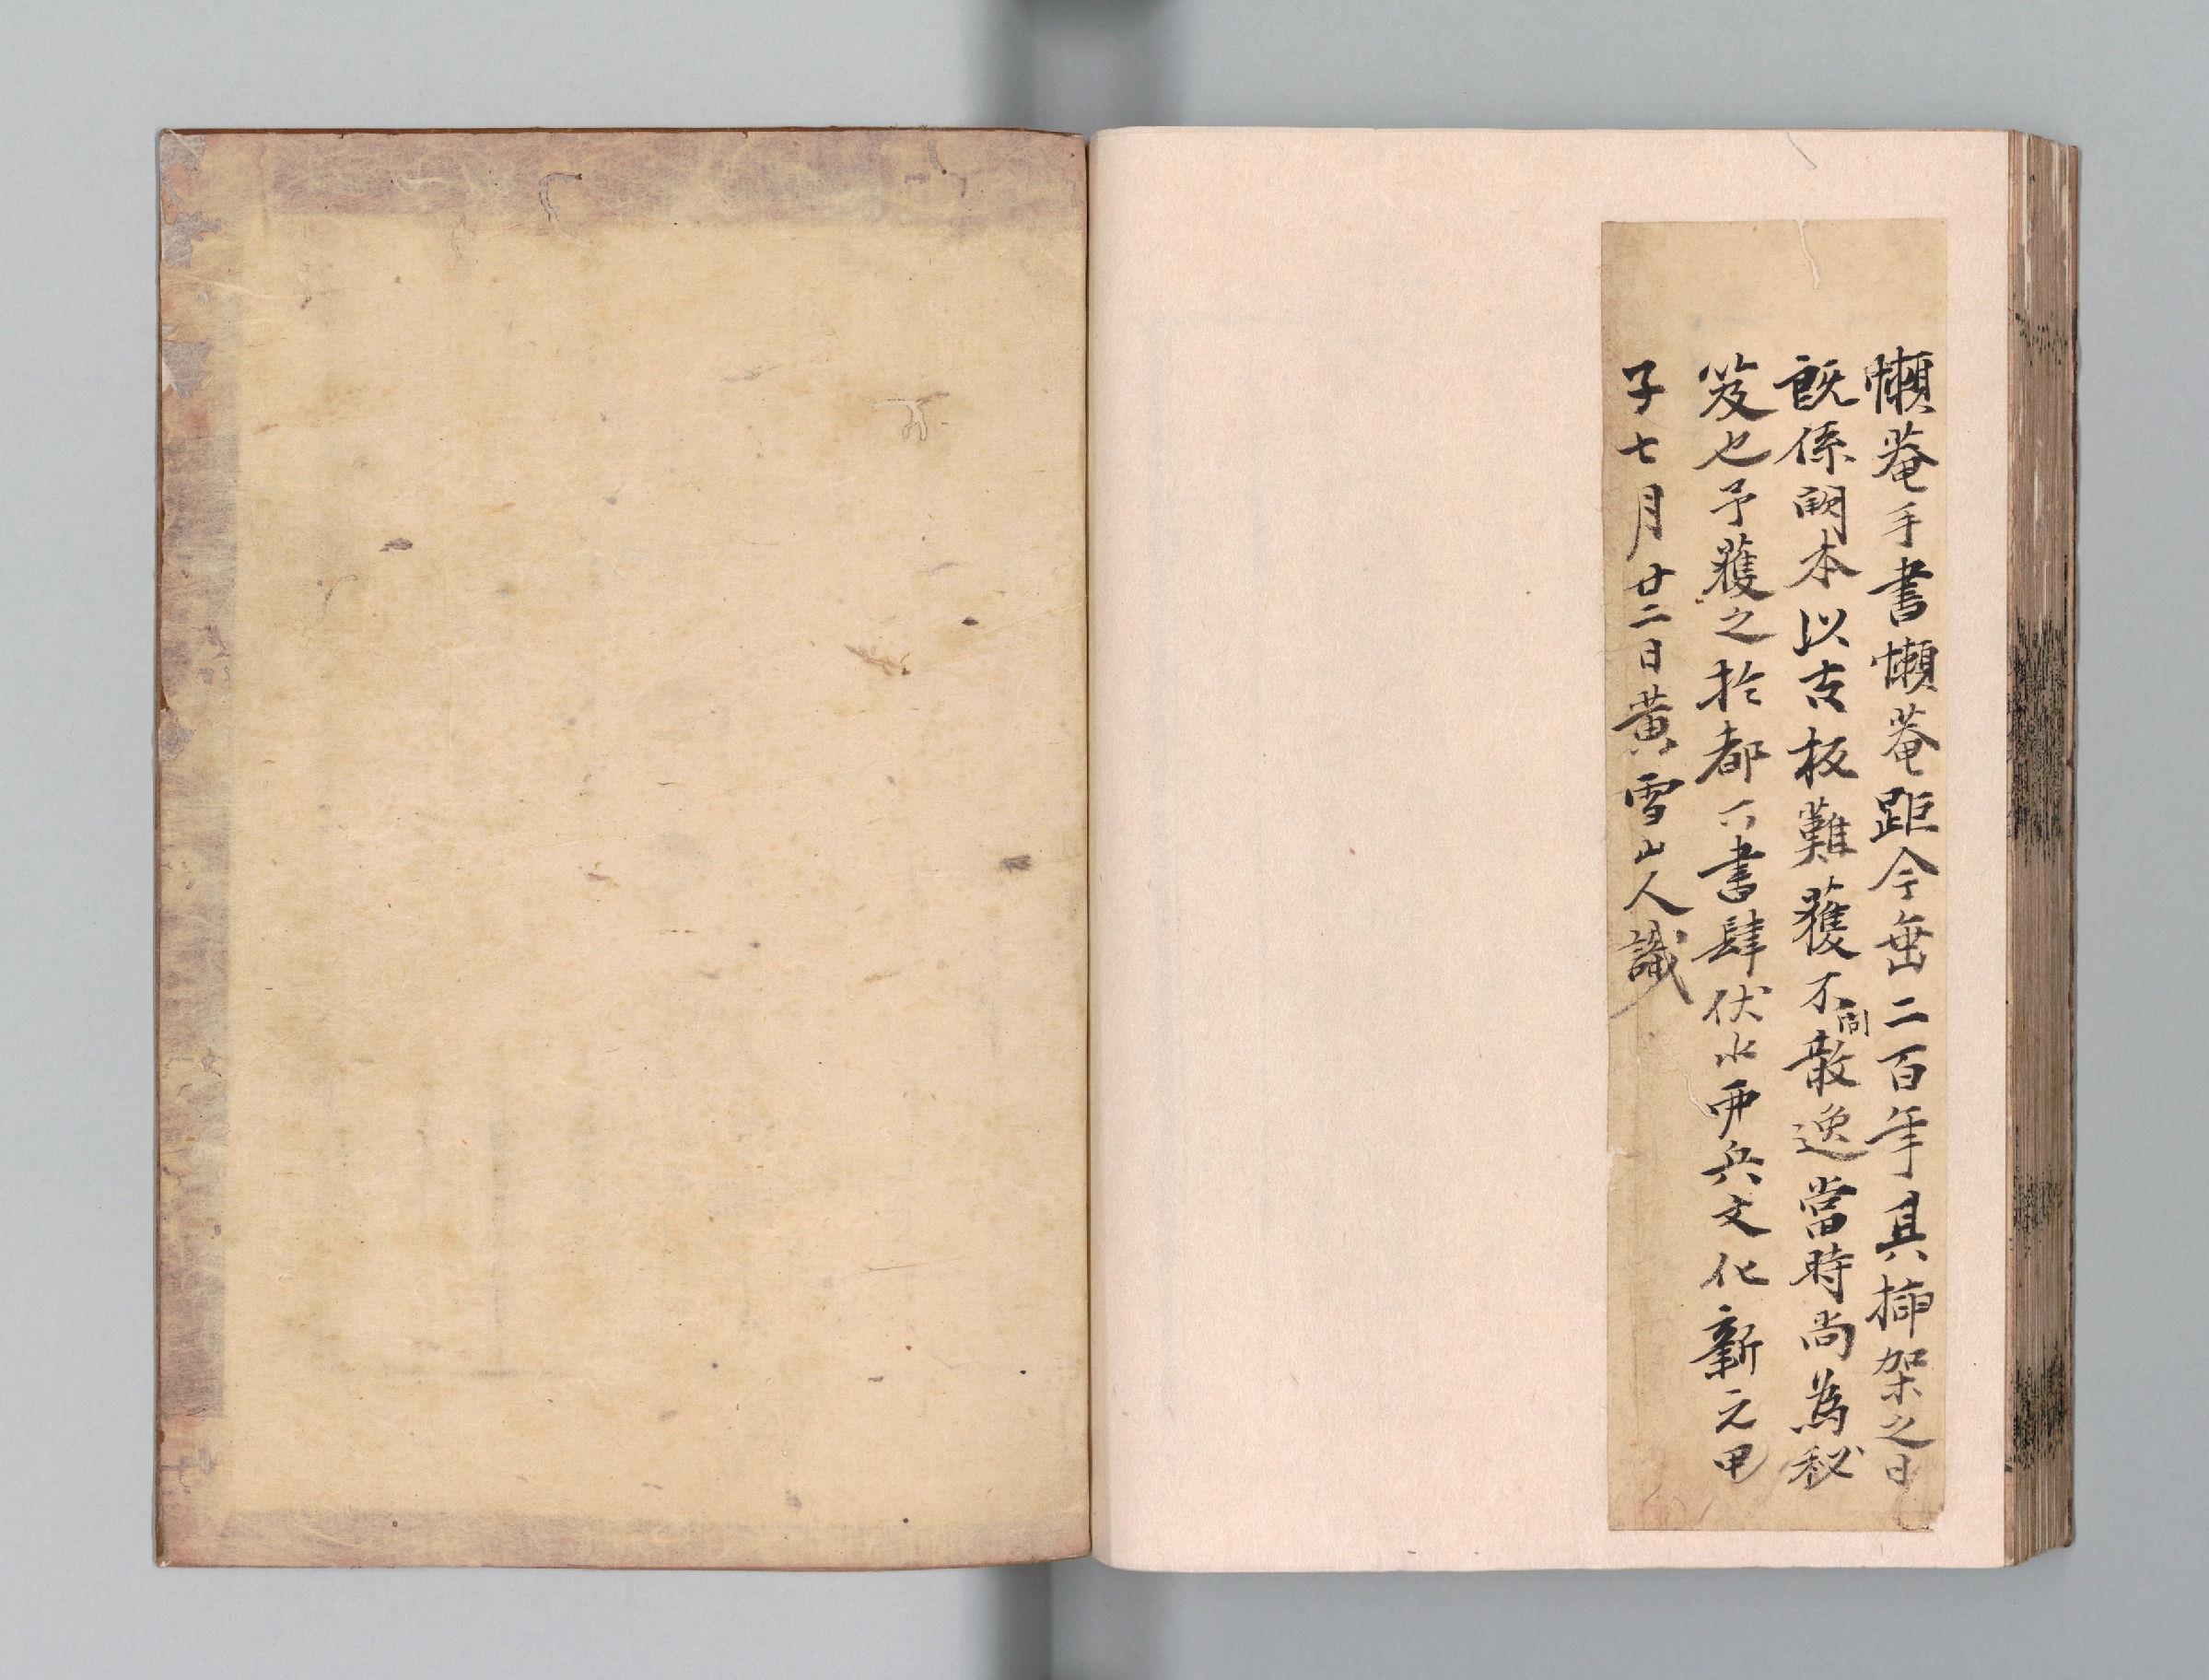 懶菴手書懶菴距今垂二百年具揷架之日
既係闕本以古板難獲不問散逸當時尚為秘
笈也予獲之於都下書肆伏水爭兵文化新元甲
子七月廿二日黄雪山人識